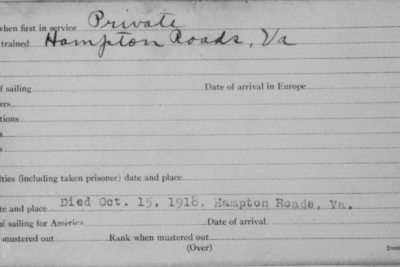 when first in service Private
trained Hampton Roads, Va
of sailing Date of arrival in Europe
ers
tions
s
s
lties (including taken prisoner) date and place
te and place Died Oct. 15, 1918. Hampton Roads, Va.
of sailing for America Date of arrival
mustered out Rank when mustered out
(Over)